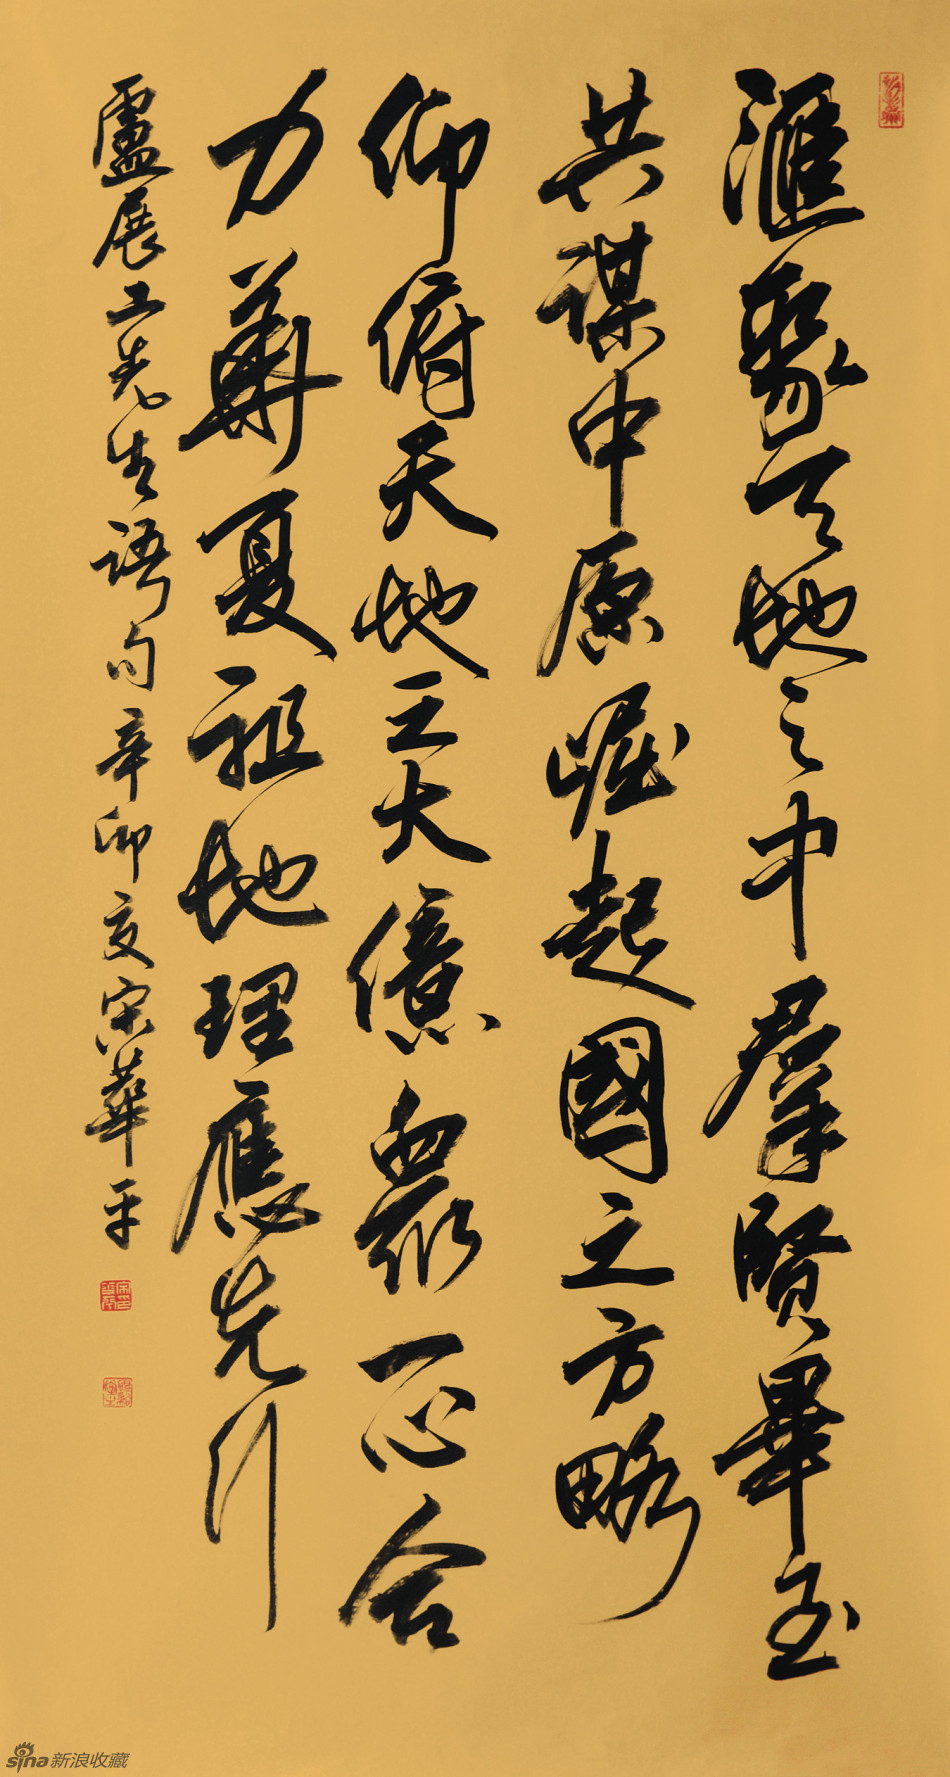 滙聚天地之中群賢畢至
共謀中原崛起國之方略
仰俯天地之大億衆一心合
力華夏祖地理應先行
盧展工先生語句辛卯夏宋華平
sina新浪收藏